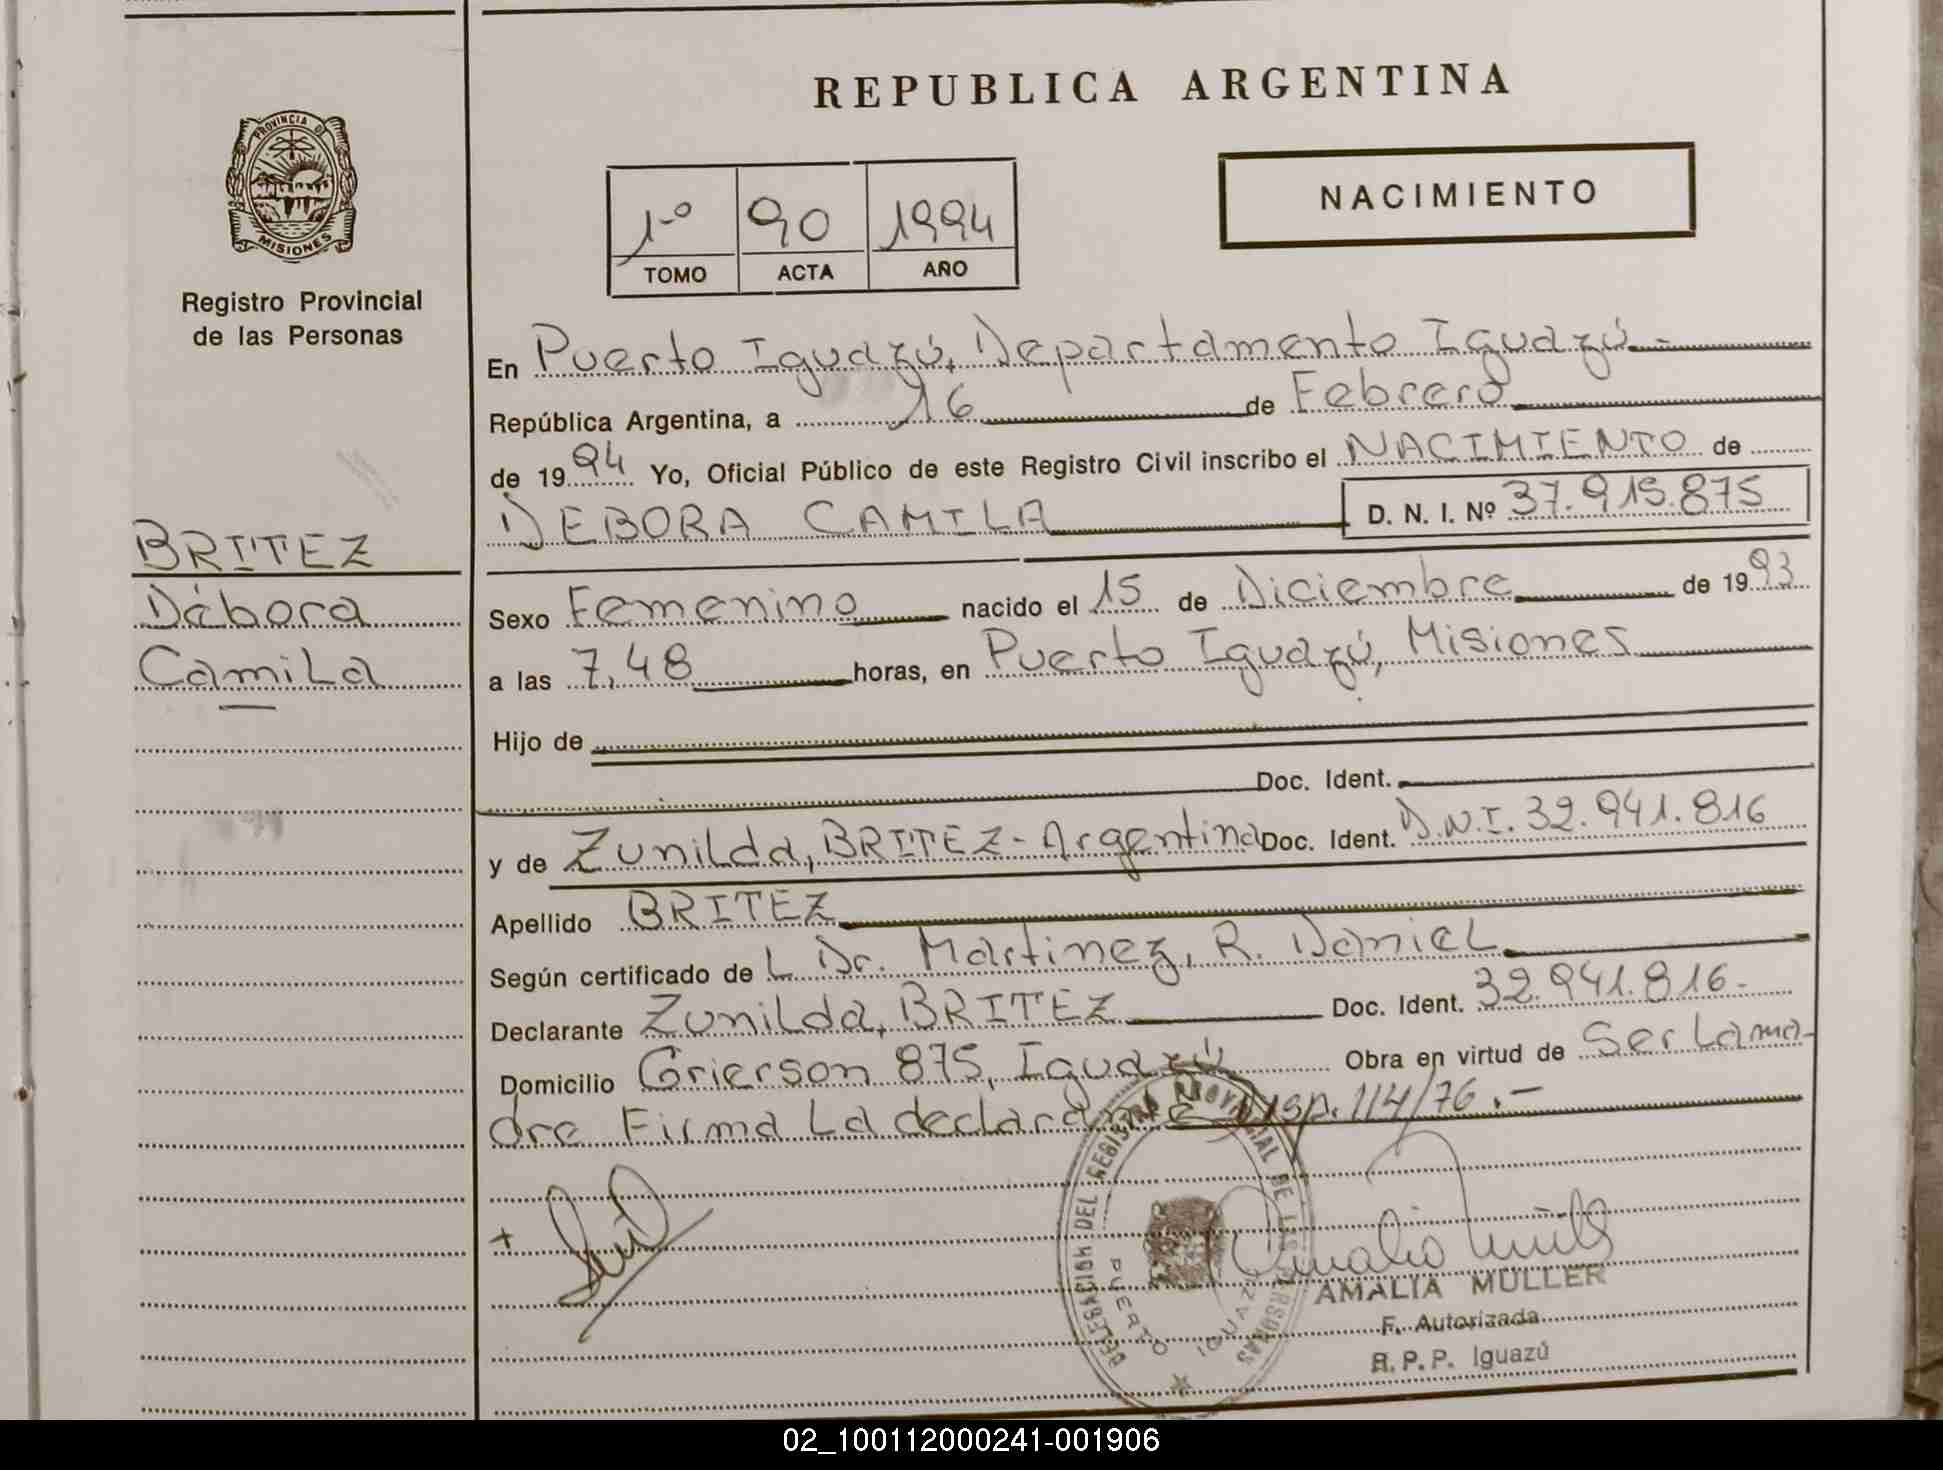 REPUBLICA ARGENTINA
PROVINCIA DE
MISIONES
Registro Provincial
de las Personas
1º 90 1994
TOMO ACTA AÑO
NACIMIENTO
En Puerto Iguazú, Departamento Iguazú.-
República Argentina, a 16 de Febrero
de 1994 Yo, Oficial Público de este Registro Civil inscribo el NACIMIENTO de
DEBORA CAMILA D. N. I. Nº 37.915.875
BRITEZ
Débora
Camila
Sexo Femenino nacido el 15 de Diciembre de 1993
a las 7,48 horas, en Puerto Iguazú, Misiones
Hijo de
Doc. Ident.
y de Zunilda, BRITEZ - Argentina Doc. Ident. D.N.I. 32.941.816
Apellido BRITEZ
Según certificado de L Dr. Martinez, R. Daniel
Declarante Zunilda, BRITEZ Doc. Ident. 32.941.816.-
Domicilio Grierson 875, Iguazú Obra en virtud de Ser La ma-
dre Firma La declarante Disp. 114/76.-
+
DELEGACION DEL REGISTRO PROVINCIAL DE LAS PERSONAS
PUERTO IGUAZU
Amalia Müller
AMALIA MULLER
F. Autorizada
R. P. P. Iguazú
02_100112000241-001906